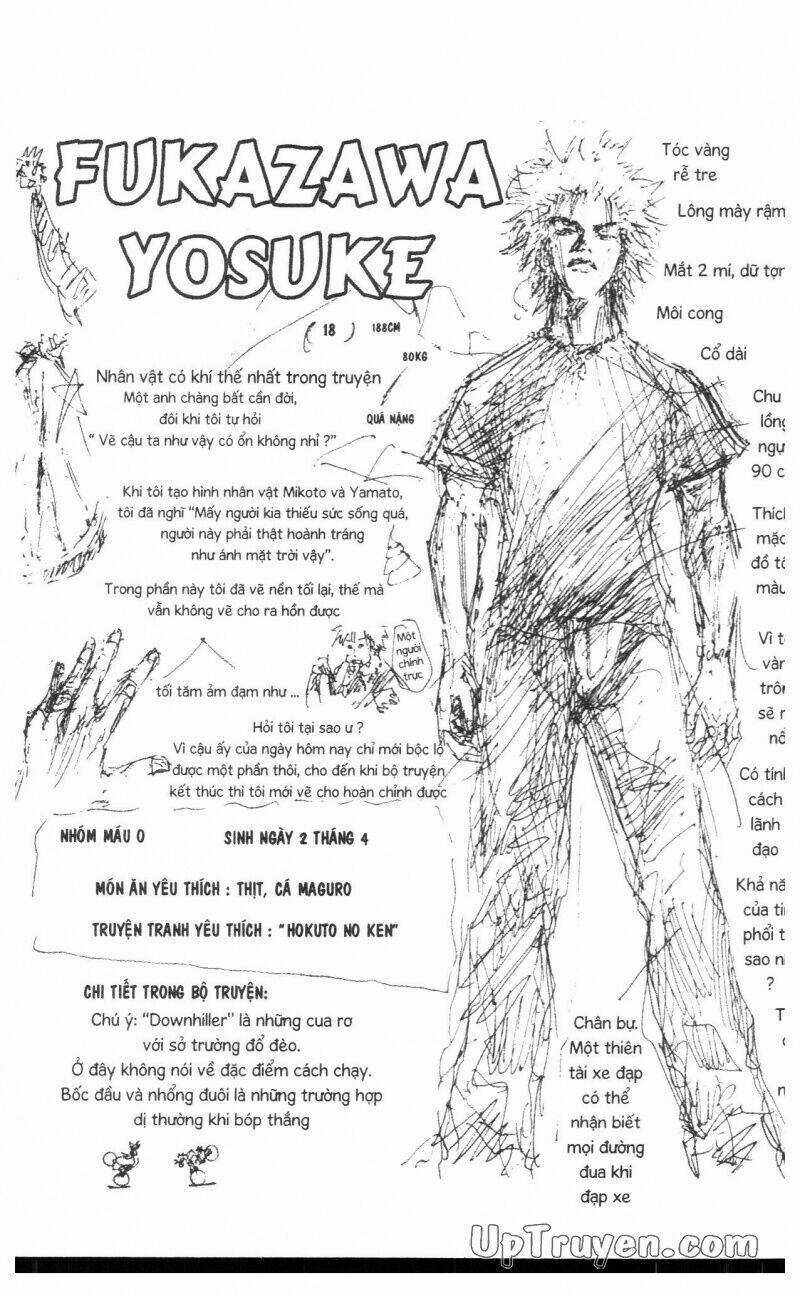 FUKAZAWA
YOSUKE
( 18 ) 188CM
80KG
QUÁ NẶNG
Nhân vật có khí thế nhất trong truyện
Một anh chàng bất cần đời,
đôi khi tôi tự hỏi
“ Vẽ cậu ta như vậy có ổn không nhỉ ?”
Khi tôi tạo hình nhân vật Mikoto và Yamato,
tôi đã nghĩ “Mấy người kia thiếu sức sống quá,
người này phải thật hoành tráng
như ánh mặt trời vậy”.
Trong phần này tôi đã vẽ nền tối lại, thế mà
vẫn không vẽ cho ra hồn được
tối tăm ảm đạm như ...
Một
người
chính
trực
Hỏi tôi tại sao ư ?
Vì cậu ấy của ngày hôm nay chỉ mới bộc lộ
được một phần thôi, cho đến khi bộ truyện
kết thúc thì tôi mới vẽ cho hoàn chỉnh được
NHÓM MÁU O SINH NGÀY 2 THÁNG 4
MÓN ĂN YÊU THÍCH : THỊT, CÁ MAGURO
TRUYỆN TRANH YÊU THÍCH : “HOKUTO NO KEN”
CHI TIẾT TRONG BỘ TRUYỆN:
Chú ý: “Downhiller” là những cua rơ
với sở trường đổ đèo.
Ở đây không nói về đặc điểm cách chạy.
Bốc đầu và nhổng đuôi là những trường hợp
dị thường khi bóp thắng
Tóc vàng
rễ tre
Lông mày rậm
Mắt 2 mí, dữ tợn
Môi cong
Cổ dài
Chu
lồng
ngự
90 c
Thích
mặc
đồ tố
màu
Vì t
vàn
trôn
sẽ r
nổ
Có tính
cách
lãnh
đạo
Khả nă
của ti
phổi t
sao n
?
T
Chân bự.
Một thiên
tài xe đạp
có thể
nhận biết
mọi đường
đua khi
đạp xe
UpTruyen.com